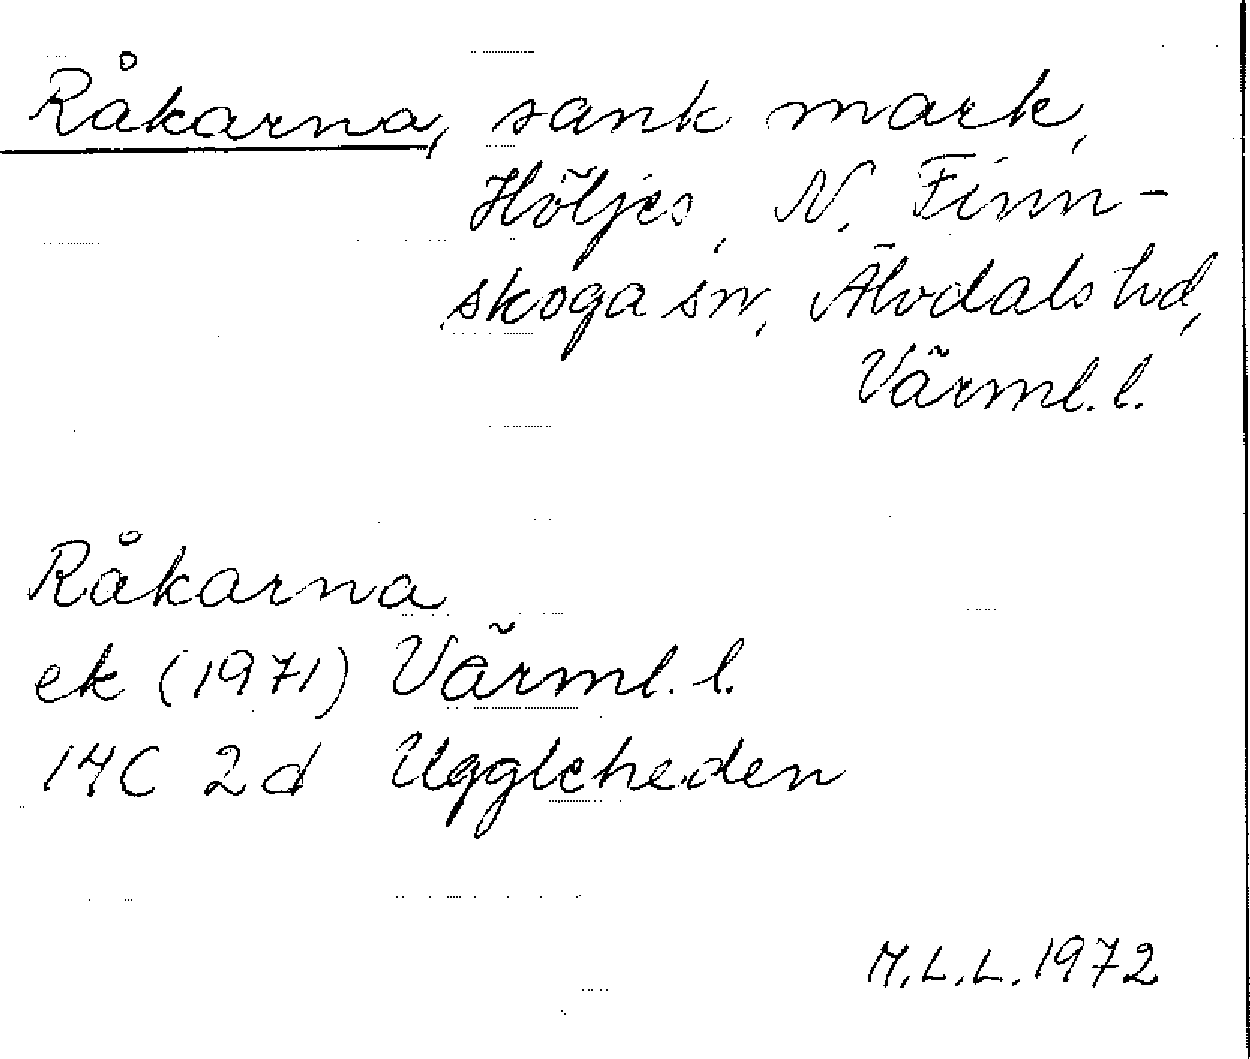 Råkarna, sank mark,
Höljes, N. Finn-
skoga sn, Älvdals hd,
Värml. l.
Råkarna
ek (1971) Värml. l.
14C 2d Uggleheden
M.L.L. 1972